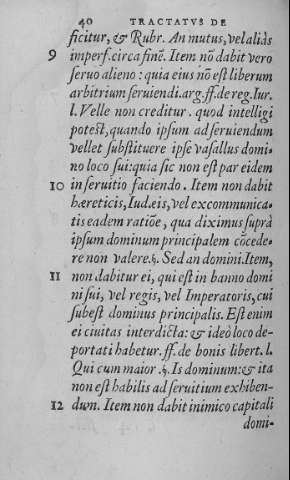 40 TRACTATVS DE
ficitur, & Rubr. An mutus, vel aliàs
9 imperf. circa finē. Item nō dabit vero
seruo alieno : quia eius nō est liberum
arbitrium seruiendi. arg. ff. de reg. Iur.
l. Velle non creditur . quod intelligi
potest, quando ipsum ad seruiendum
vellet substituere ipse vasallus domi-
no loco sui: quia sic non est par eidem
10 in seruitio faciendo . Item non dabit
hæreticis, Iudæis, vel excommunica-
tis eadem ratiōe , qua diximus suprà
ipsum dominum principalem cōcede-
re non valere. §. Sed an domini. Item,
11 non dabitur ei, qui est in banno domi
ni sui, vel regis, vel Imperatoris, cui
subest dominus principalis. Est enim
ei ciuitas interdicta: & ideò loco de-
portati habetur. ff. de bonis libert. l.
Qui cum maior .§. Is dominum: & ita
non est habilis ad seruitium exhiben-
dum. 12 Item non dabit inimico capitali
domi-